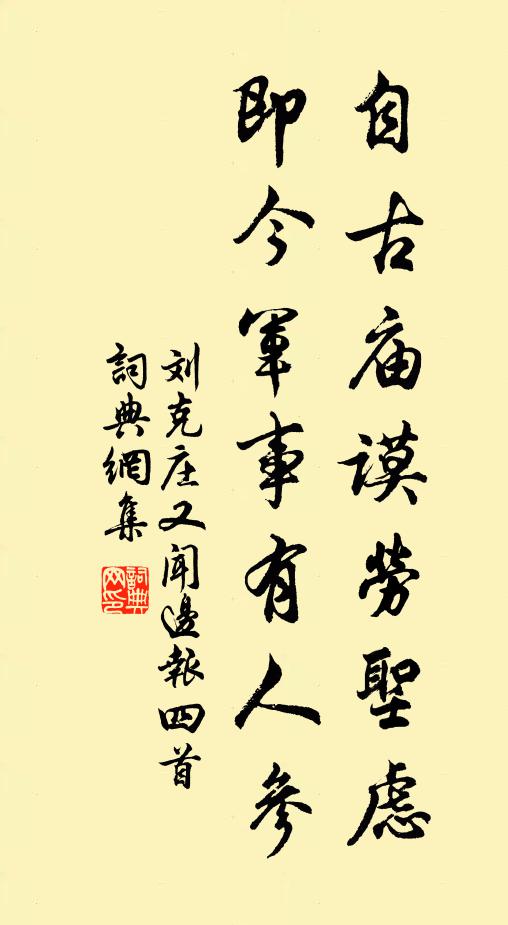 自古庙謨勞聖慮
即今軍事有人參
刘克庄又聞邊報四首
詞典網集
詞典
网印